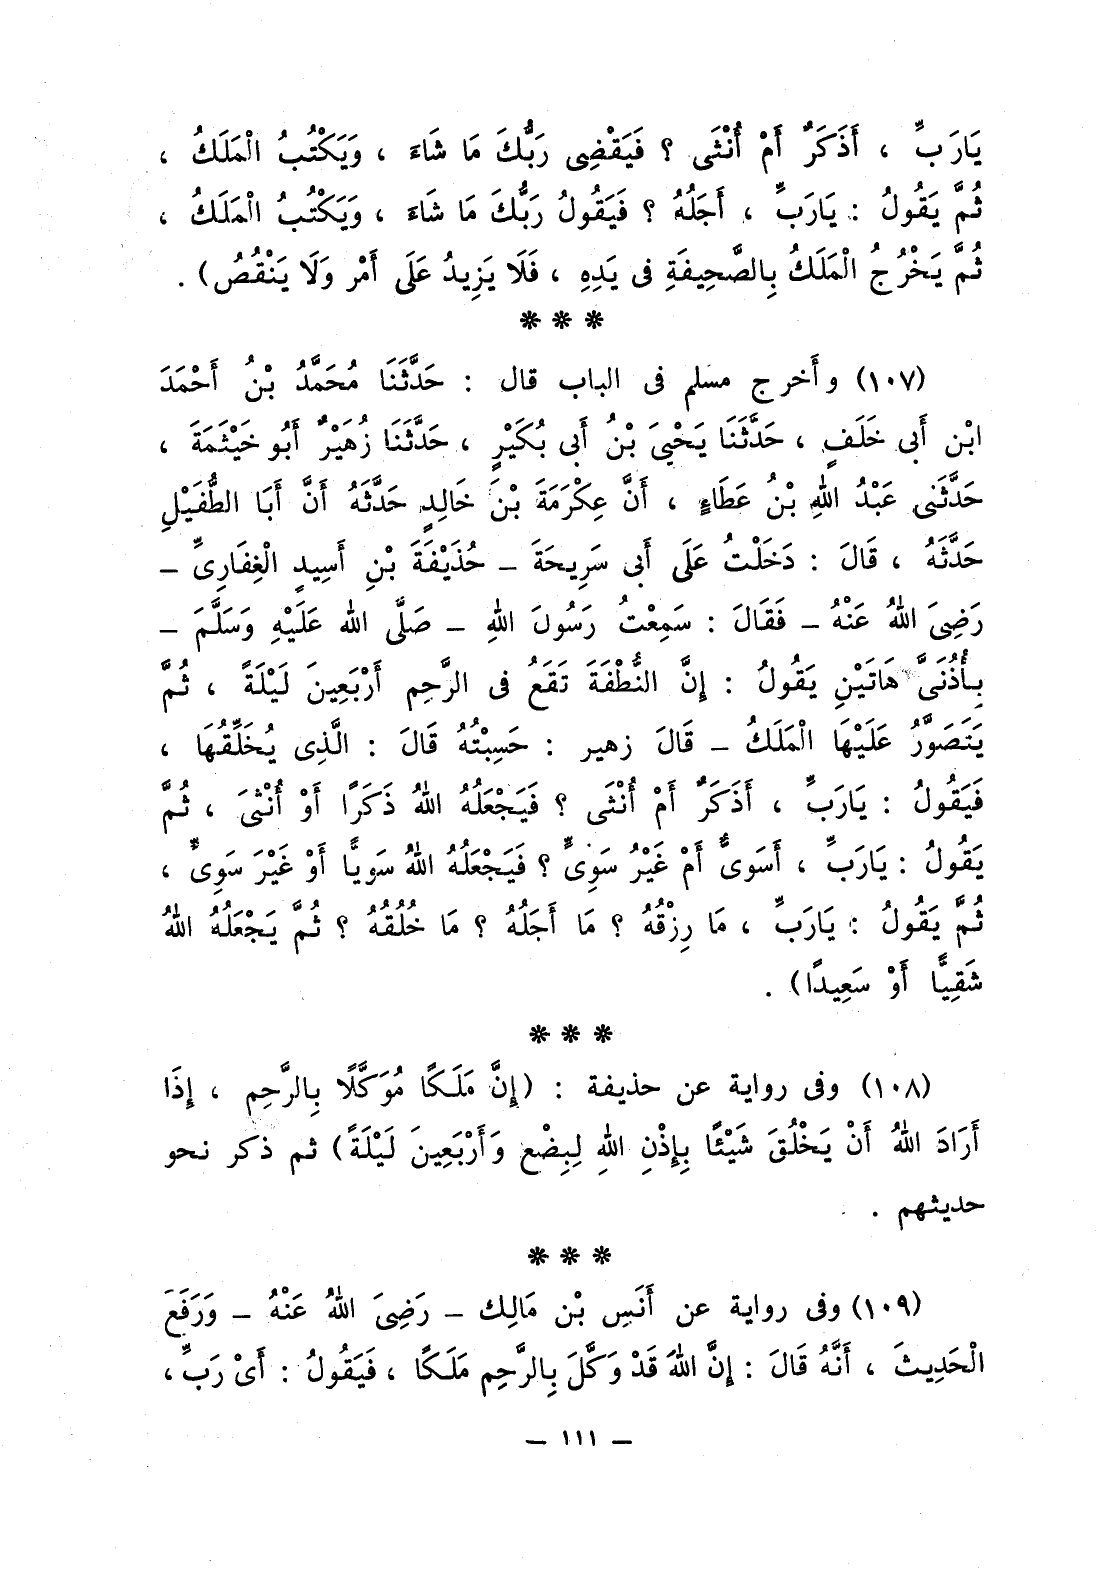 يَارَبِّ ، أَذَكَرٌ أَمْ أُنْثَى ؟ فَيَقْضِى رَبُّكَ مَا شَاءَ ، وَيَكْتُبُ الْمَلَكُ ،
ثُمَّ يَقُولُ : يَارَبِّ ، أَجَلُهُ ؟ فَيَقُولُ رَبُّكَ مَا شَاءَ ، وَيَكْتُبُ الْمَلَكُ ،
ثُمَّ يَخْرُجُ الْمَلَكُ بِالصَّحِيفَةِ فى يَدِهِ ، فَلَا يَزِيدُ عَلَى أَمْرٍ وَلَا يَنْقُصُ) .
* * *
(١٠٧) وأخرج مسلم فى الباب قال : حَدَّثَنَا مُحَمَّدُ بْنُ أَحْمَدَ
ابْنِ أَبى خَلَفٍ ، حَدَّثَنَا يَحْيىَ بْنُ أَبى بُكَيْرٍ ، حَدَّثَنَا زُهَيْرٌ أَبُو خَيْثَمَةَ ،
حَدَّثَنى عَبْدُ اللهِ بْنُ عَطَاءٍ ، أَنَّ عِكْرَمَةَ بْنَ خَالِدٍ حَدَّثَهُ أَنَّ أَبَا الطُّفَيْلِ
حَدَّثَهُ ، قَالَ : دَخَلْتُ عَلَى أَبى سَرِيحَةَ - حُذَيْفَةَ بْنِ أَسِيدٍ الْغِفَارِىِّ -
رَضِىَ اللهُ عَنْهُ - فَقَالَ : سَمِعْتُ رَسُولَ اللهِ - صَلَّى الله عَلَيْهِ وَسَلَّمَ -
بِأُذُنَىَّ هَاتَيْنِ يَقُولُ : إِنَّ النُّطْفَةَ تَقَعُ فى الرَّحِمِ أَرْبَعِينَ لَيْلَةً ، ثُمَّ
يَتَصَوَّرُ عَلَيْهَا الْمَلَكُ - قَالَ زهير : حَسِبْتُهُ قَالَ : الَّذِى يُخَلِّقُهَا ،
فَيَقُولُ : يَارَبِّ ، أَذَكَرٌ أَمْ أُنْثَى ؟ فَيَجْعَلُهُ اللهُ ذَكَرًا أَوْ أُنْثىَ ، ثُمَّ
يَقُولُ : يَارَبِّ ، أَسَوِىٌّ أَمْ غَيْرُ سَوِىٍّ ؟ فَيَجْعَلُهُ اللهُ سَوِيًّا أَوْ غَيْرَ سَوِىٍّ ،
ثُمَّ يَقُولُ : يَارَبِّ ، مَا رِزْقُهُ ؟ مَا أَجَلُهُ ؟ مَا خُلُقُهُ ؟ ثُمَّ يَجْعَلُهُ اللهُ
شَقِيًّا أَوْ سَعِيدًا) .
* * *
(١٠٨) وفى رواية عن حذيفة : (إِنَّ مَلَكًا مُوَكَّلًا بِالرَّحِمِ ، إِذَا
أَرَادَ اللهُ أَنْ يَخْلُقَ شَيْئًا بِإِذْنِ اللهِ لِبِضْعٍ وَأَرْبَعِينَ لَيْلَةً) ثم ذكر نحو
حديثهم .
* * *
(١٠٩) وفى رواية عن أَنَسِ بْنِ مَالِك - رَضِىَ اللهُ عَنْهُ - وَرَفَعَ
الْحَدِيثَ ، أَنَّهُ قَالَ : إِنَّ اللهَ قَدْ وَكَّلَ بِالرَّحِمِ مَلَكًا ، فَيَقُولُ : أَىْ رَبِّ ،
- ١١١ -